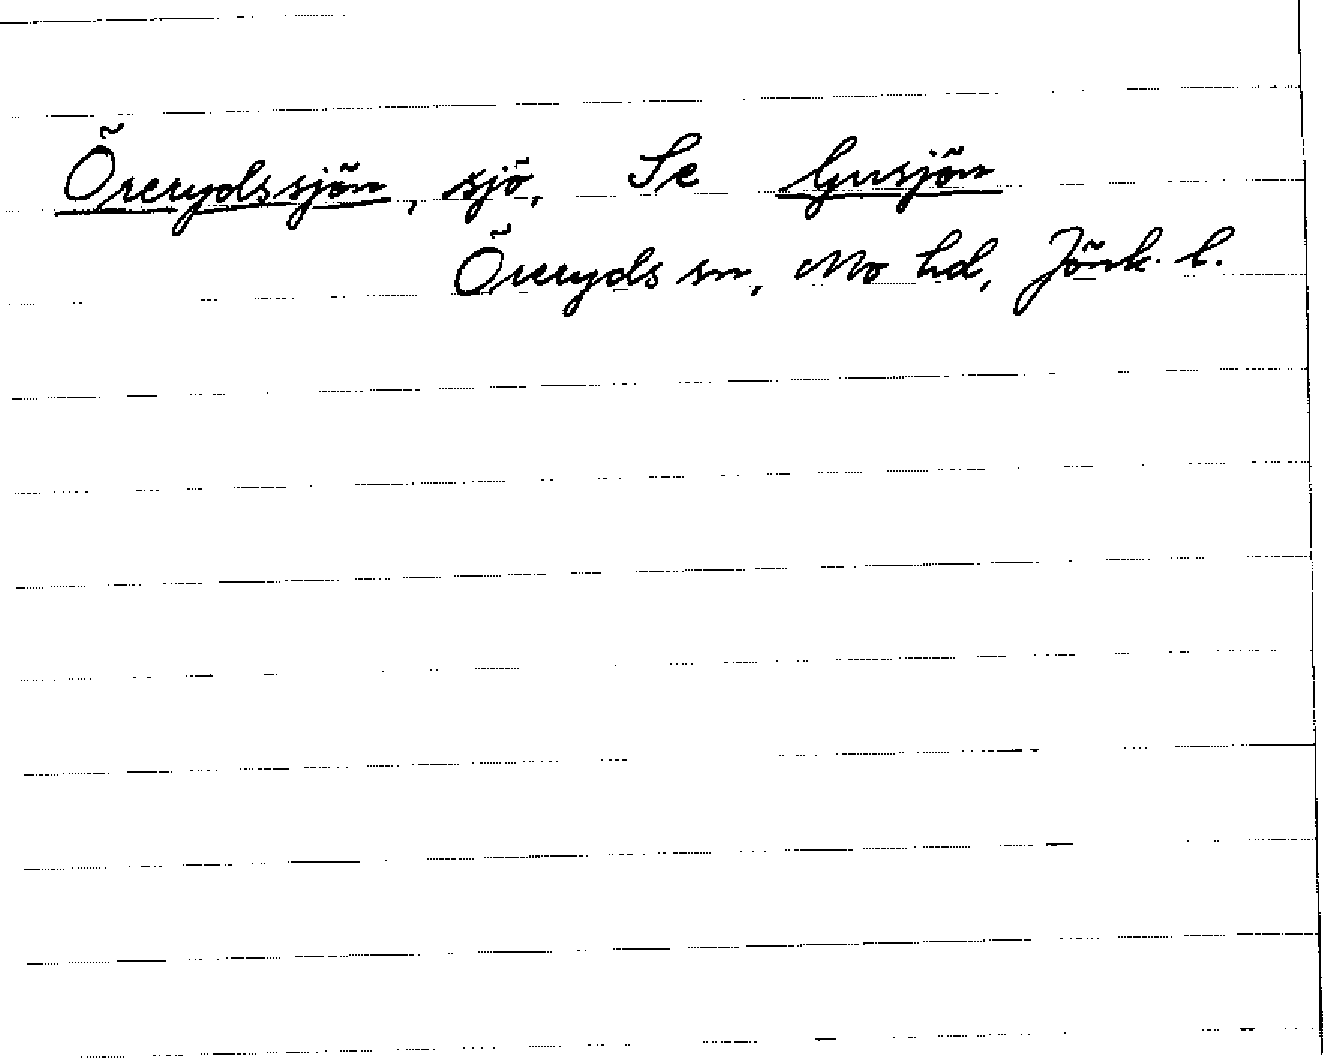 Örerydssjön, sjö. Se Gusjön
Öreryds sn, Mo hd, Jönk. l.